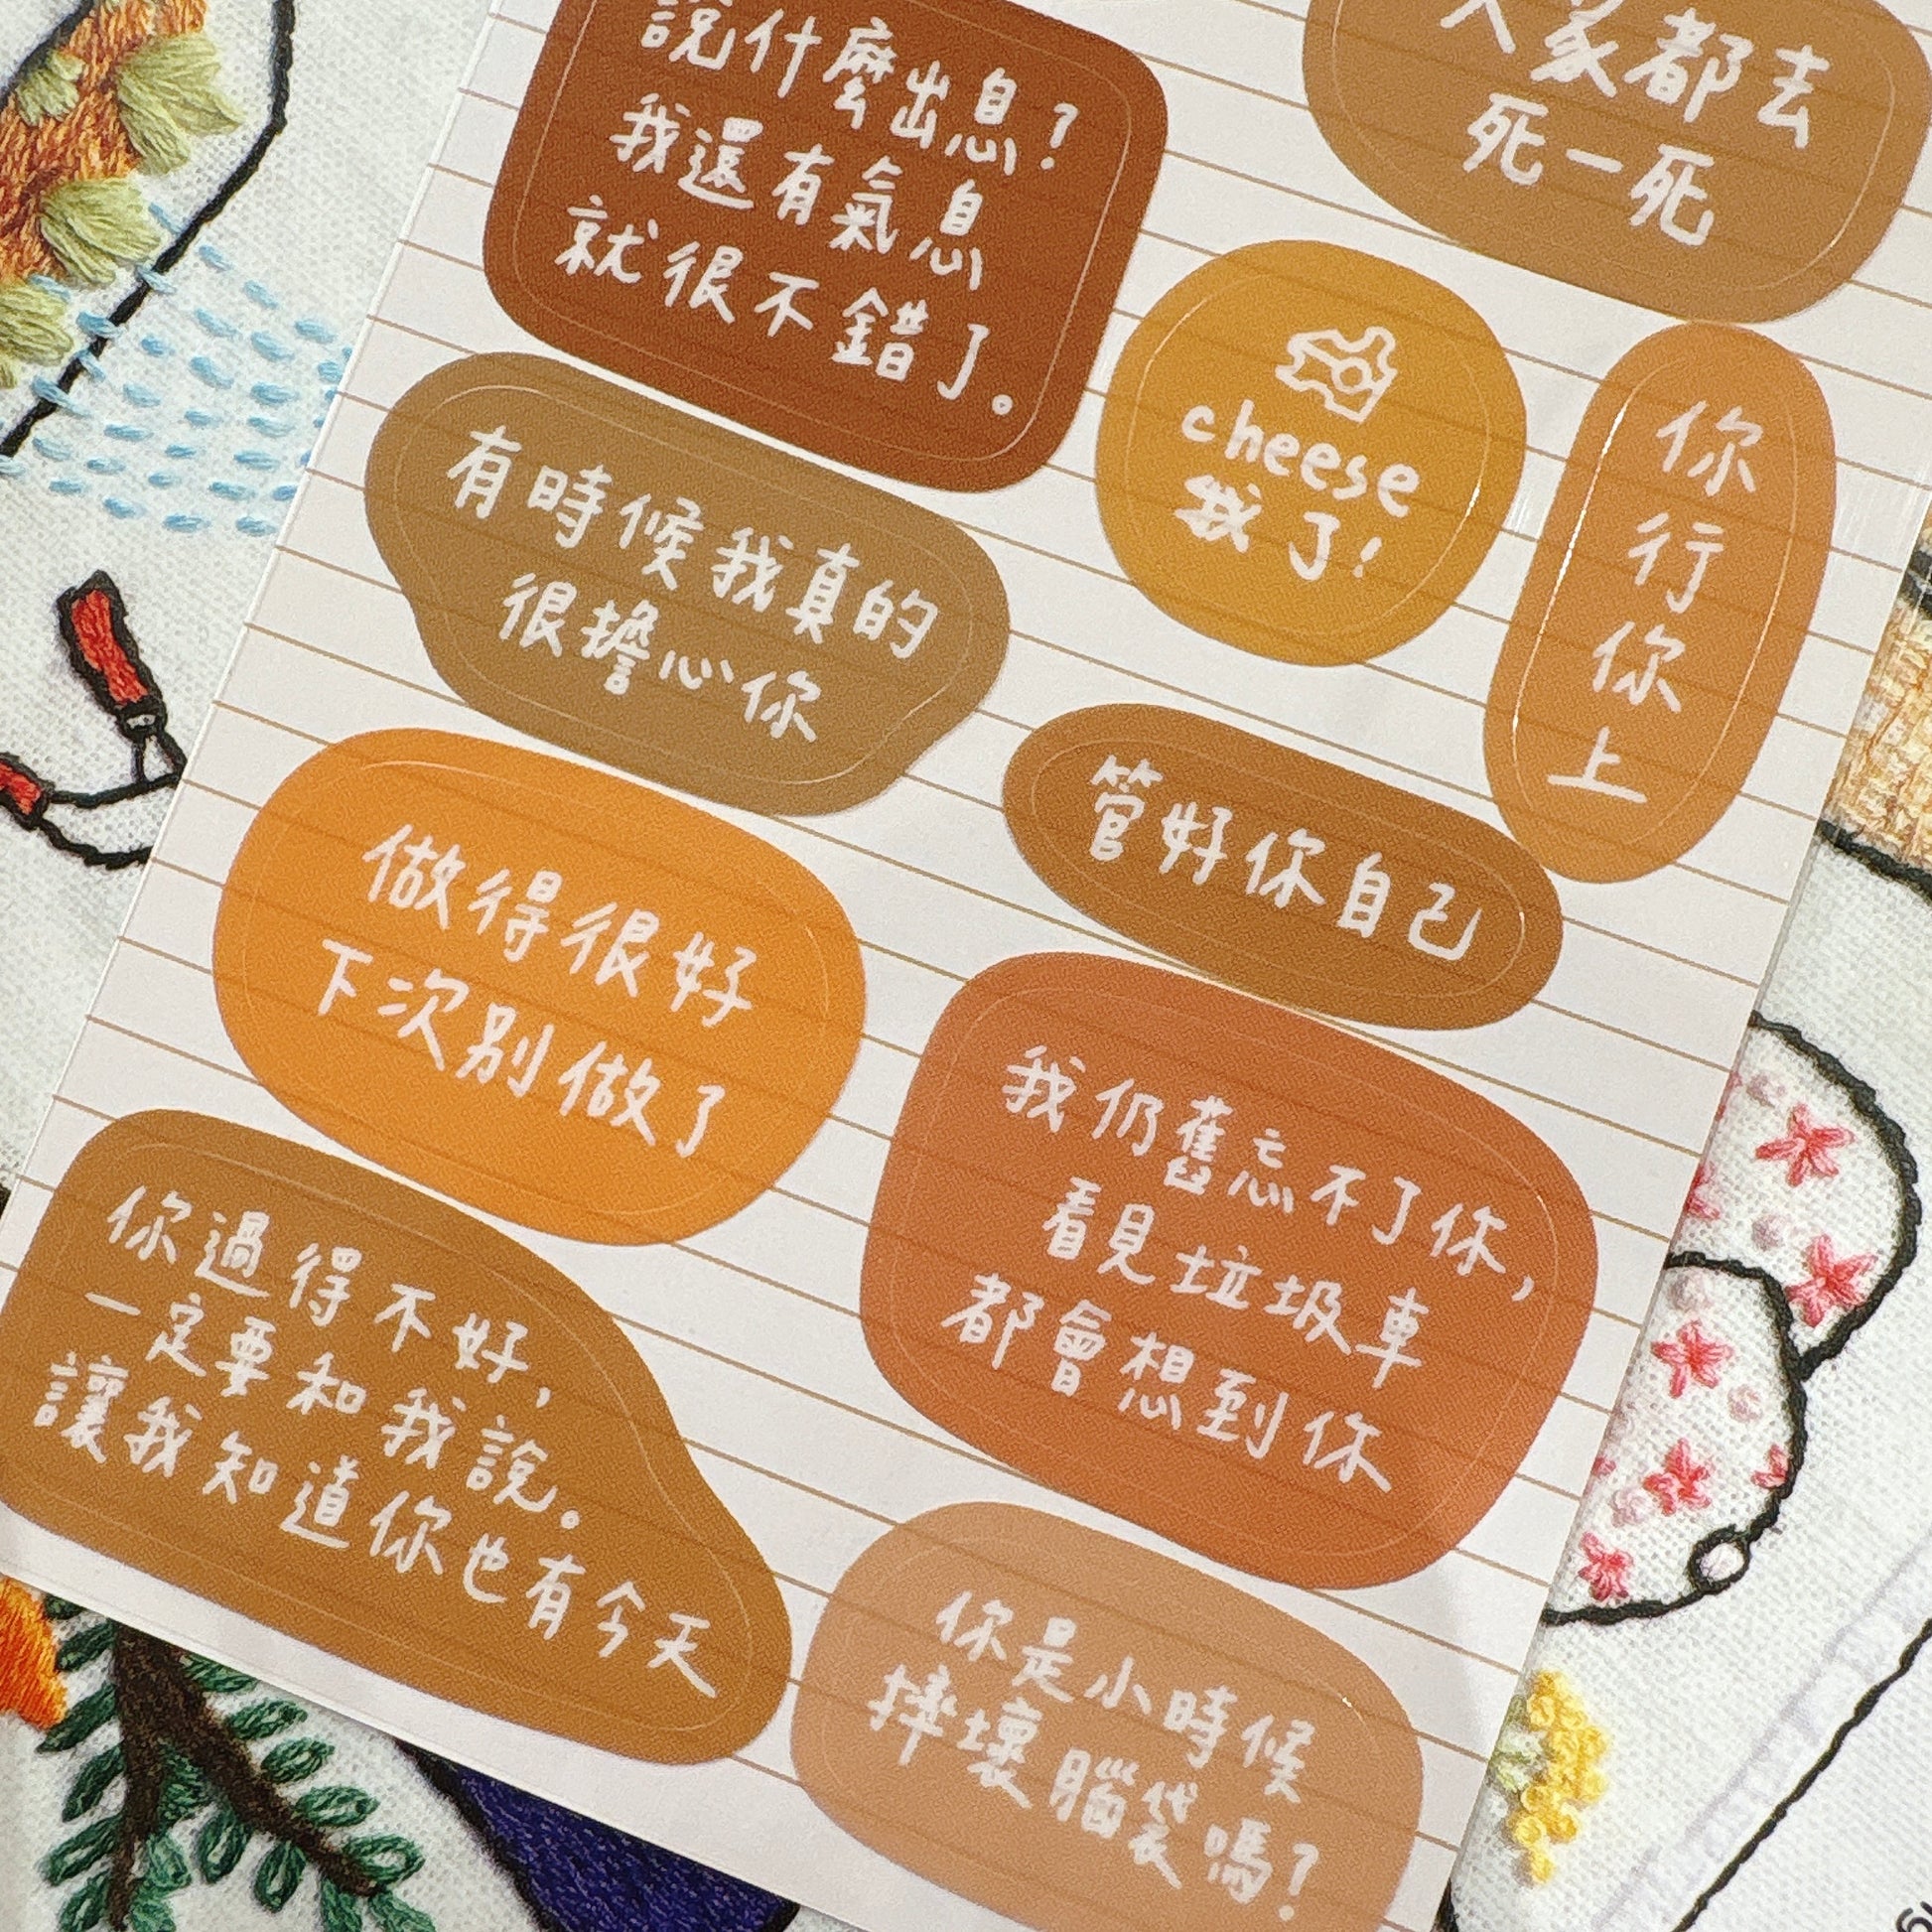 說什麼出息?
我還有氣息
就很不錯了。
大家都去
死一死
cheese
我了!
你行你上
有時候我真的
很擔心你
管好你自己
做得很好
下次別做了
我仍舊忘不了你,
看見垃圾車
都會想到你
你過得不好,
一定要和我說。
讓我知道你也有今天
你是小時候
摔壞腦袋嗎?